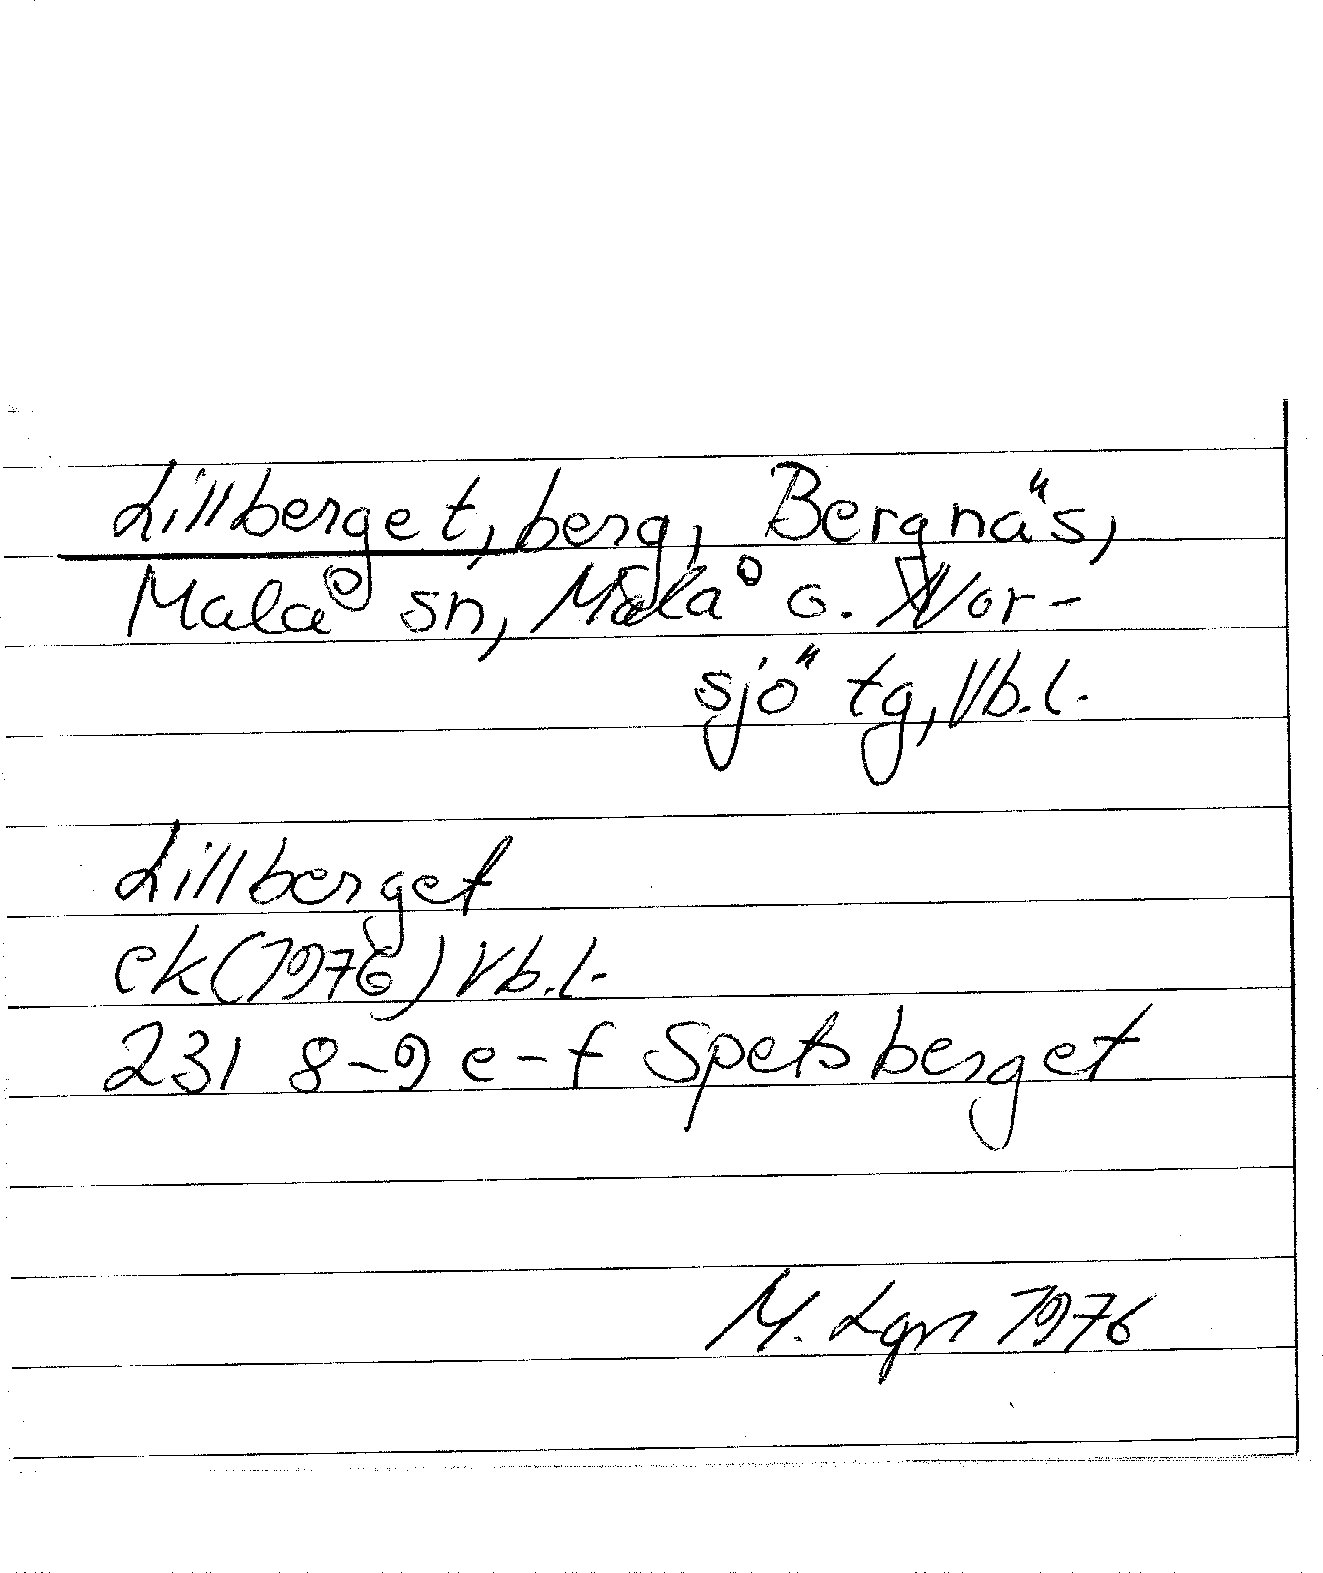 Lillberget, berg, Bergnäs,
Malå sn, Malå o. Nor-
sjö tg, Vb.l.
Lillberget
ek(1976) Vb.l.
23I 8-9 e-f Spetsberget
M. Lgn 1976